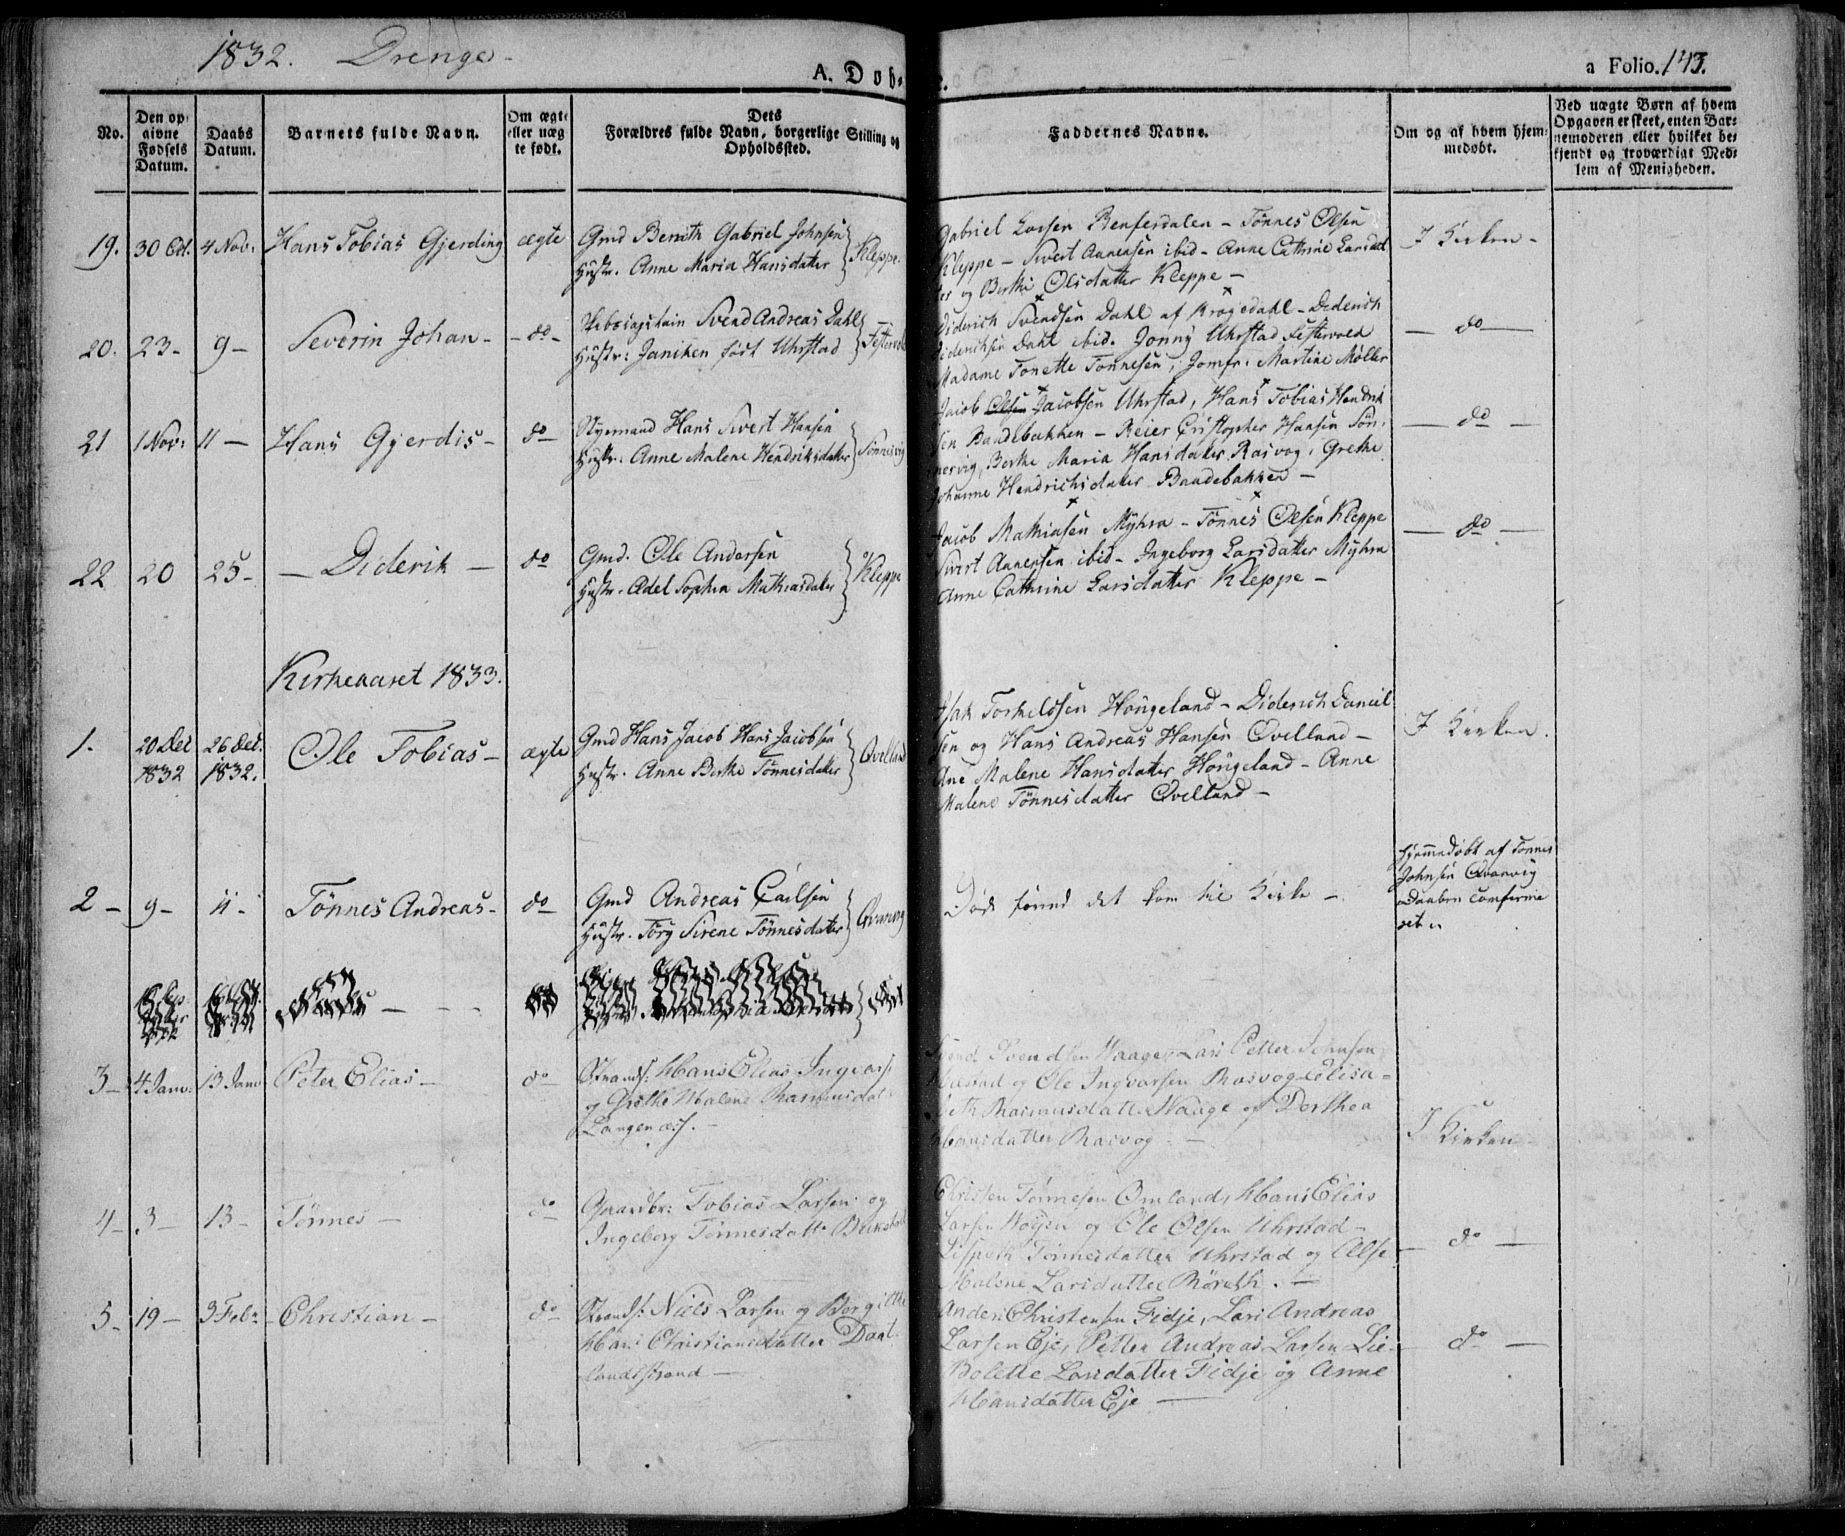 1832. Drenge -
A. Døb-
a Folio. 143.
No.
Den op-
givne
Fødsels
Datum.
Daabs
Datum.
Barnets fulde Navn.
Om ægte
eller uæg
te født.
Dets
Forældres fulde Navn, borgerlige Stilling og
Opholdssted.
Faddernes Navne.
Om og af hvem hjem-
medøbt.
Ved uægte Børn af hvem
Opgaven er skeet, enten Bar-
nemoderen eller hvilket be-
kjendt og troværdigt Med-
lem af Menigheden.
19. 30 Oct. 4 Nov: Hans Tobias Gjerding ægte
Gmd Bernth Gabriel Johnsen
Hustr. Anne Maria Hansdatter
Kleppe.
Gabriel Larsen Renfersdalen - Tønnes Olsen
Kleppe - Sivert Annensen ibid - Anne Cathrine Larsdat
ter og Berthe Olsdatter Kleppe -
I Kirken -
20. 23 - 9 - Severin Johan - do -
Svend Andreas Dahl
Hustr: Janiken født Uhrstad
Diderich Svendsen Dahl af Krogedahl - Dederich
Dideriksen Dahl ibid. Jonny Uhrstad Festervold
Madame Tonette Tønnesen, Jomfr: Martine Møller
- do -
21 1 Nov: 11 - Hans Gjerdis - do
Styrmand Hans Sivert Hansen
Hustr: Anne Malene Hendriksdatter
Sønnevig
Jacob Olsen Jacobsen Uhrstad, Hans Tobias Hendrik
sen Baadebakken - Reier Christopher Hansen Søn-
nervig, Berthe Maria Hansdatter Rasvog, Grethe
Johanne Hendrichsdatter Baadebakken -
- do -
22 20 25 - - Diderik - do
Gmd. Ole Andersen
Hustr. Adel Sophia Mathiasdatter
Kleppe
Jacob Mathiasen Myhra - Tønnes Olsen Kleppe
Sivert Annensen ibid - Ingeborg Larsdatter Myhra
Anne Cathrine Larsdatter Kleppe -
- do -
Kirkeaaret 1833.
1. 20 Dec 26 Dec. Ole Tobias - ægte
1832 1832.
Gmd Hans Jacob Hans Jacobsen
Hustr. Anne Berthe Tønnesdatter
Qvelland
Isak Torkeldsen Høugeland - Diderich Daniel
sen og Hans Andreas Hansen Qvelland -
Ane Malene Hansdatter Høugeland - Anne
Malene Tønnesdatter Qvelland -
I Kirken.
2 - 9 - 11 - Tønnes Andreas - do
Gmd Andreas Carlsen
Hustr. Torg Sirene Tønnesdatter
Død førend det kom til Kirke -
Hjemmedøbt af Tønnes
Johnsen Qvanvig
Daaben confirme
ret
3 - 4 Janv. 13 Janv Peter Elias - do
Strands: Hans Elias Ingvars:
og Dorthe Malene Rasmusdat:
Langenæs. -
Svend Svendsen Haage, Lars Petter Johnsen
og Ole Ingvarsen Rasvog Elisa-
beth Rasmusdatter Haage og Dorthea
Hansdatter Rasvog -
I Kirken
4 - 3 - 13 - Tønnes - do
Gaardbr: Tobias Larsen og
Ingeborg Tønnesdatt:
Christen Tønnesen Omland, Hans Elias
Larsen Høysen og Ole Olsen Uhrstad -
Lispeth Tønnesdatter Uhrstad og Else
Malene Larsdatter Røreth. -
- do -
5 - 19 - 3 Feb: Christian - do
Strands: Niels Larsen og Bergitthe
Hans Christiansdatter Daat-
landsstrand -
Anders Christensen Fidje, Lars Andreas
Larsen Eje, Petter Andreas Larsen Lie -
Bolette Larsdatter Fidje og Anne
Hansdatter Eje -
- do -